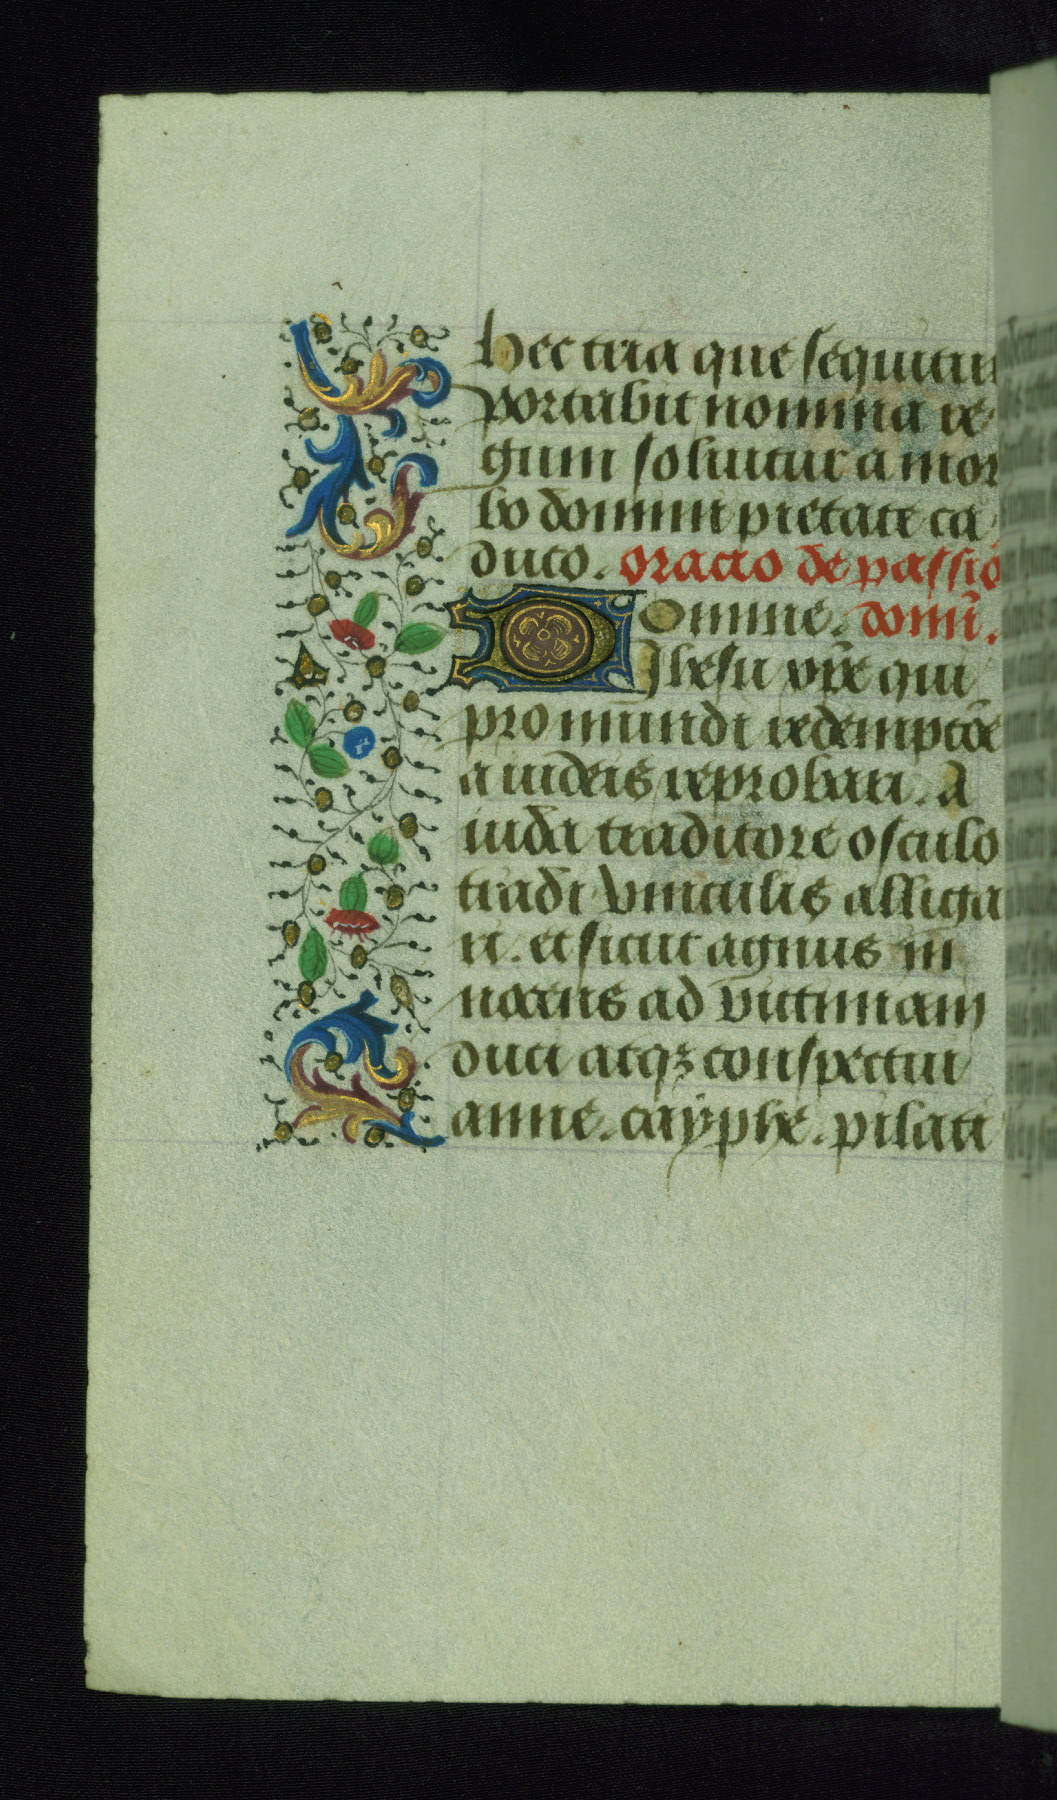 hec tria que sequitur
portabit nomina re
gum soluitur a mor
bo domini pietate ca
duco. oracio de passiō
Domine. domī.
Ihesu xp̄e qui
pro mundi redemptōe
a iudeis reprobari. A
iuda traditore osculo
tradi vinculis alliga
ri. et sicut agnus in
nocens ad victimam
duci atqꝫ conspectui
anne. cayphe. pilati